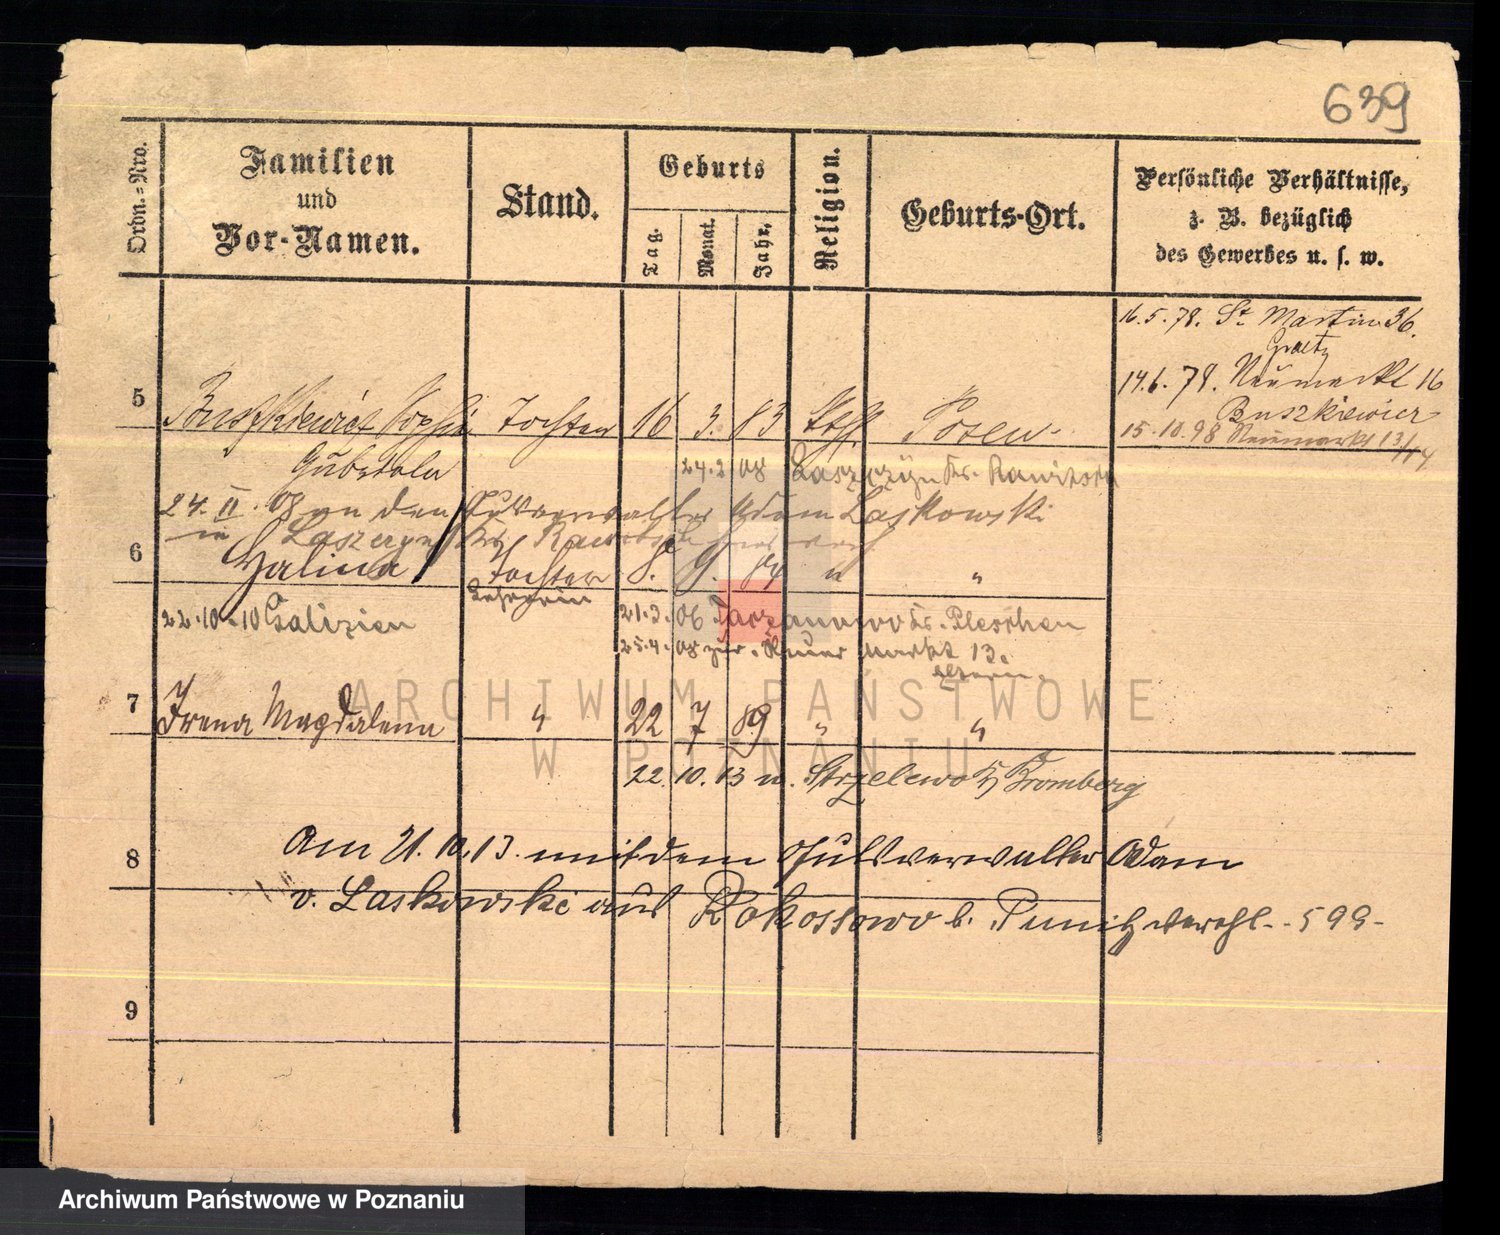 639
Ordn.=Nro.
Familien
und
Vor-Namen.
Stand.
Geburts
Tag.
Monat.
Jahr.
Religion.
Geburts-Ort.
Persönliche Verhältnisse,
z. B. bezüglich
des Gewerbes u. s. w.
16.5.78. St. Martin 36.
Graetz
14.6.78. Neumarkt 16
Buszkiewicz
15.10.98 Neumarkt 13/14
5 Buszkiewicz Sophie Tochter 16 3. 83 kth Posen
24.2 08 Kr. Rawitsch
24. II. 08 an den Gutsverwalter Adam Laskowski
in Kr. Rawitsch verh.
6 Halina Tochter 8. 9. 84 " "
Lehrerin
22.10.10 Galizien
21.3.06 Tarzanowo Kr. Pleschen
25.4.08 zur. Neuer Markt 13.
Eltern.
7 Irena Magdalena " 22 7 89 " "
22.10.13 n. Strzelewo Bromberg
8 Am 21.10.13. mit dem Gutsverwalter Adam
v. Laskowski aus Rokossowo b. Punitz verehl. - 599 -
9
ARCHIWUM PAŃSTWOWE
W POZNANIU
Archiwum Państwowe w Poznaniu